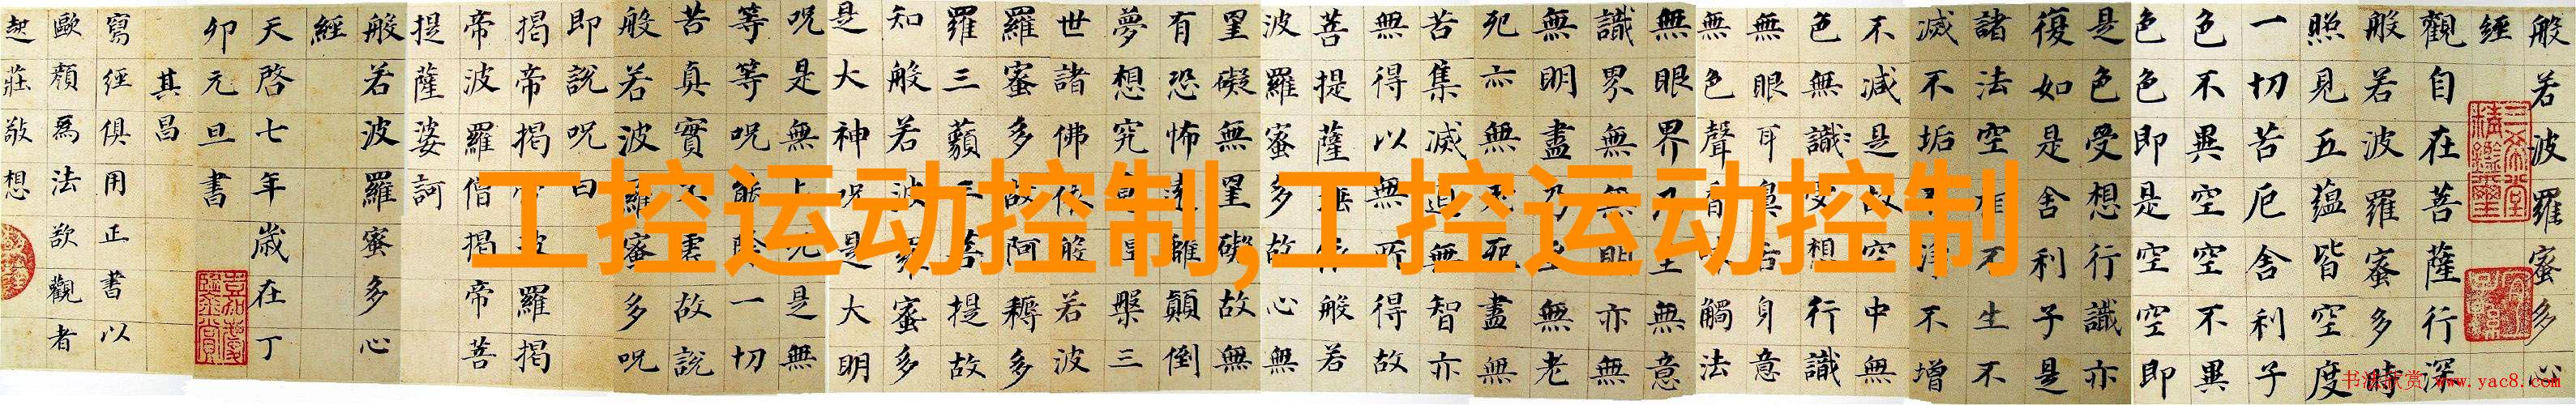 般若波羅蜜多心
經
觀自在菩薩行深
般若波羅蜜多時
照見五蘊皆空度
一切苦厄舍利子
色不異空空不異
色色即是空空即
是色受想行識亦
復如是舍利子是
諸法空相不生不
滅不垢不淨不增
不減是故空中無
色無識受想行識
無眼耳鼻舌身意
無色聲香味觸法
無眼界乃至無意
識界無無明亦無
無明盡乃至無老
死亦無老死盡無
苦集滅道無智亦
無得以無所得故
菩提薩埵依般若
波羅蜜多故心無
罣礙無罣礙故無
有恐怖遠離顛倒
夢想究竟涅槃三
世諸佛依般若波
羅蜜多故阿耨多
羅三藐三菩提故
知般若波羅蜜多
是大神呪是大明
呪是無上呪是無
等等呪能除一切
苦真實不虛故說
般若波羅蜜多呪
即說呪曰
揭帝揭帝波羅揭
帝波羅僧揭帝菩
提薩婆訶
般若波羅蜜多心
經
天啓七年歲在丁
卯元旦書
其昌
寫經俱用正書以
歐顏爲法欲觀者
起莊敬想
三希堂精鑑璽
宜子孫
工控运动控制,工控运动控制
书法欣赏 www.yac8.com